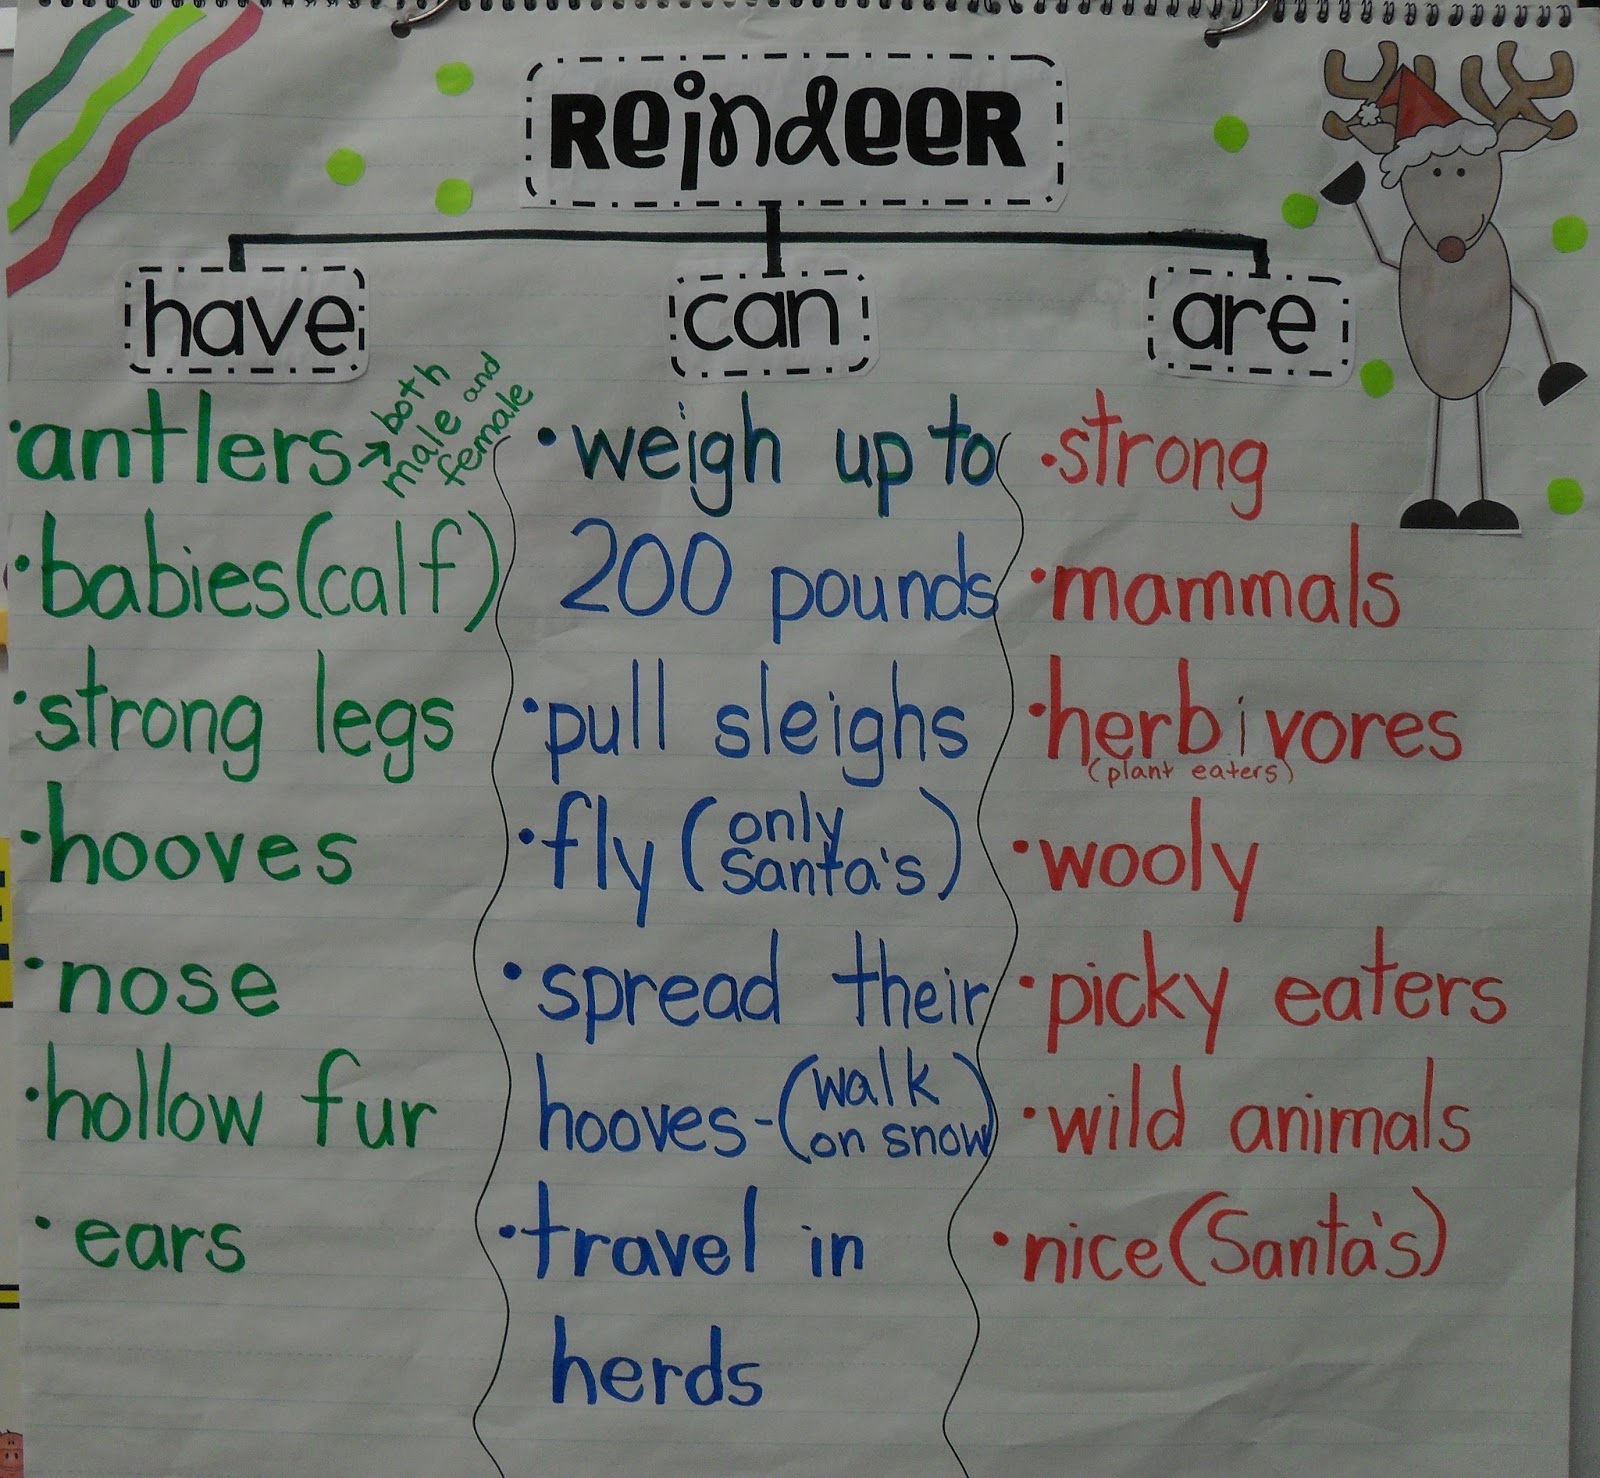 Reindeer
have
can
are
•antlers→both
male and
female
•babies(calf)
•strong legs
•hooves
•nose
•hollow fur
•ears
•weigh up to
200 pounds
•pull sleighs
•fly (only
Santa's)
•spread their
hooves-(walk
on snow)
•travel in
herds
•strong
•mammals
•herbivores
(plant eaters)
•wooly
•picky eaters
•wild animals
•nice(Santa's)